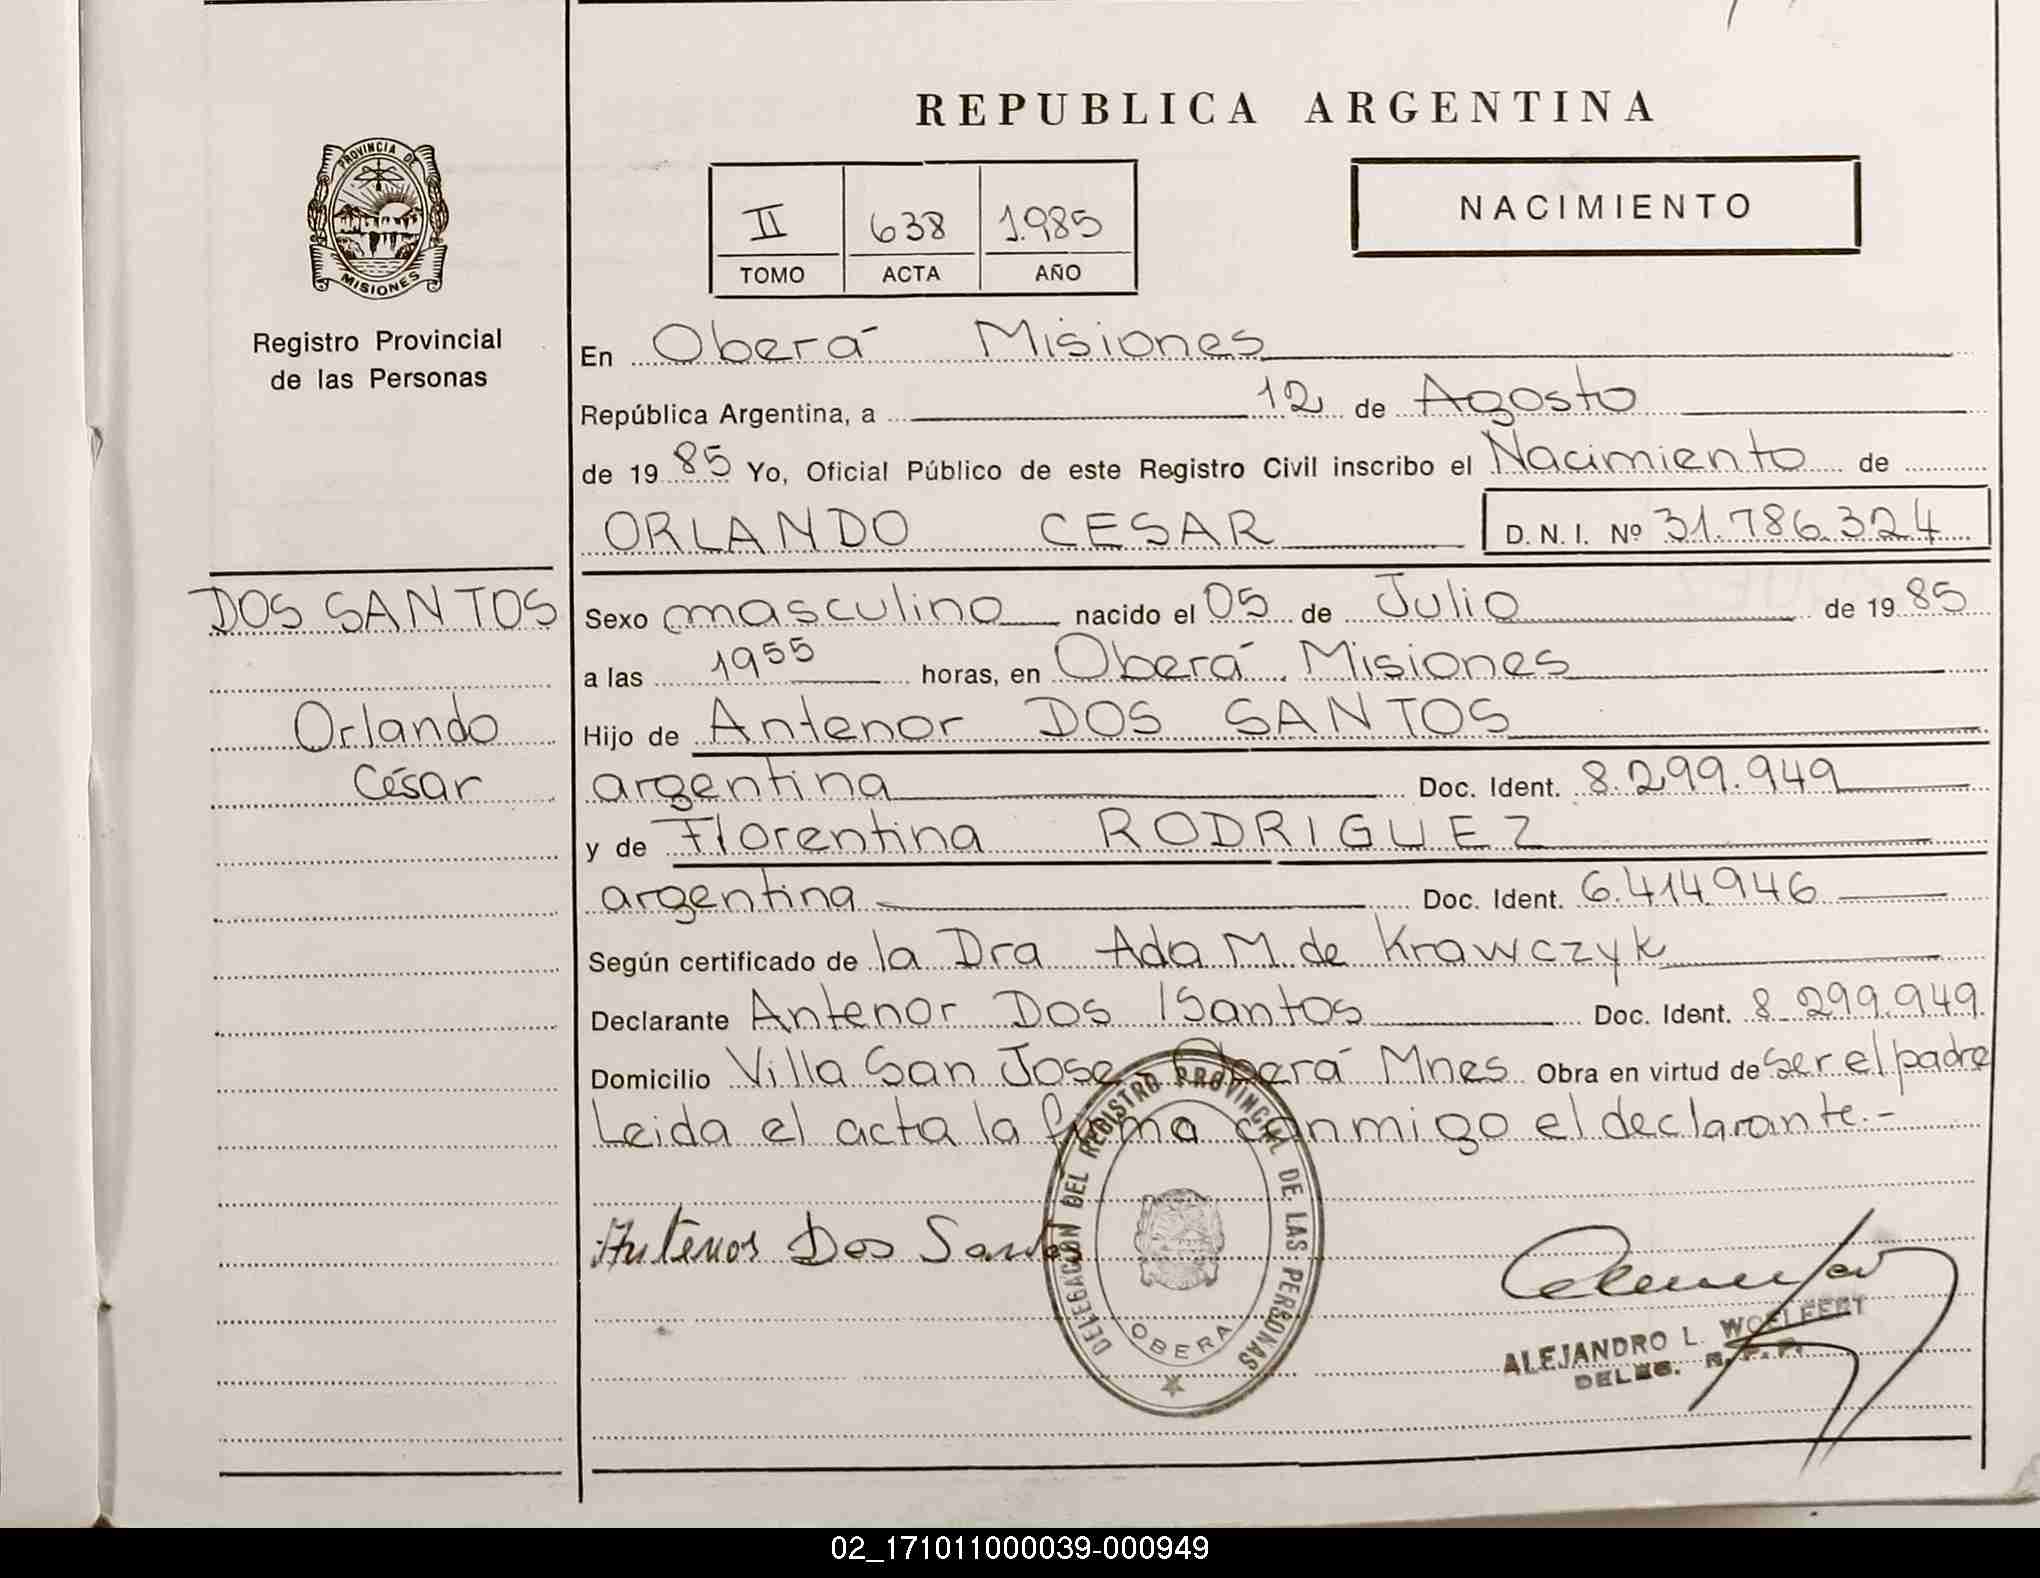 REPUBLICA ARGENTINA
PROVINCIA DE
MISIONES
Registro Provincial
de las Personas
II 638 1.985
TOMO ACTA AÑO
NACIMIENTO
En Oberá Misiones
República Argentina, a 12 de Agosto
de 19 85 Yo, Oficial Público de este Registro Civil inscribo el Nacimiento de
ORLANDO CESAR D. N. I. Nº 31.786.324
DOS SANTOS
Orlando
César
Sexo masculino nacido el 05 de Julio de 19 85
a las 1955 horas, en Oberá Misiones
Hijo de Antenor DOS SANTOS
argentina Doc. Ident. 8.299.949
y de Florentina RODRIGUEZ
argentina Doc. Ident. 6.414.946
Según certificado de la Dra Ada M. de Krawczyk
Declarante Antenor Dos Santos Doc. Ident. 8.299.949
Domicilio Villa San Jose - Oberá Mnes Obra en virtud de ser el padre
Leida el acta la firma conmigo el declarante.-
Antenor Dos Santos
DELEGACIÓN DEL REGISTRO PROVINCIAL DE LAS PERSONAS
OBERA
ALEJANDRO L. WOELFERT
DELEG. R. P. P.
02_171011000039-000949